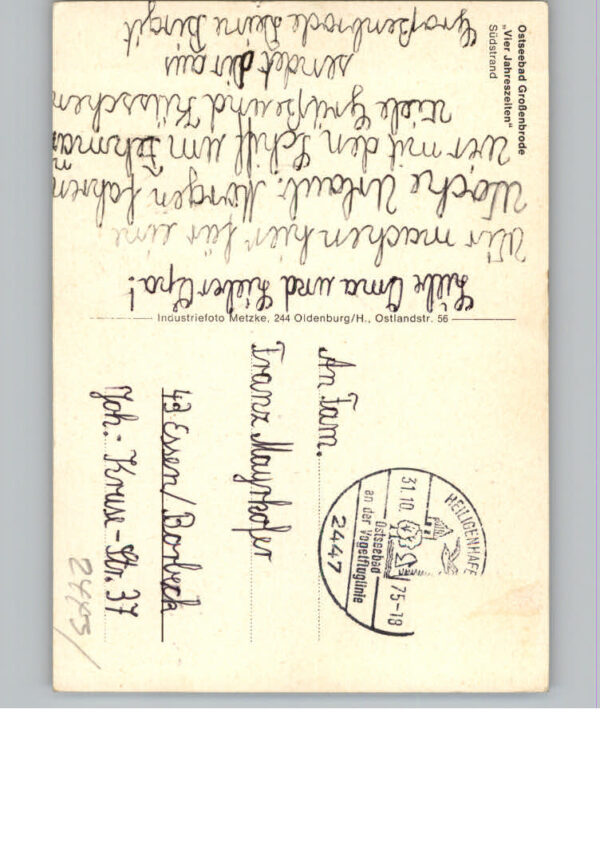 Ostseebad Großenbrode
„Vier Jahreszeiten“
Südstrand
Liebe Oma und Lieber Opa!
Wir machen hier für eine
Woche Urlaub. Morgen fahren
wer mit den Schiff um Fehmarn
Viele Grüße und Küsschen
sendet dir aus
Großenbrode Deine Birgit
Industriefoto Metzke, 244 Oldenburg/H., Ostlandstr. 56
HEILIGENHAFE
31.10. 75-18
Ostseebad
an der Vogelfluglinie
2447
An Fam.
Franz Mayrhofer
43 Essen/Borbeck
Joh.-Kruse-Str. 37